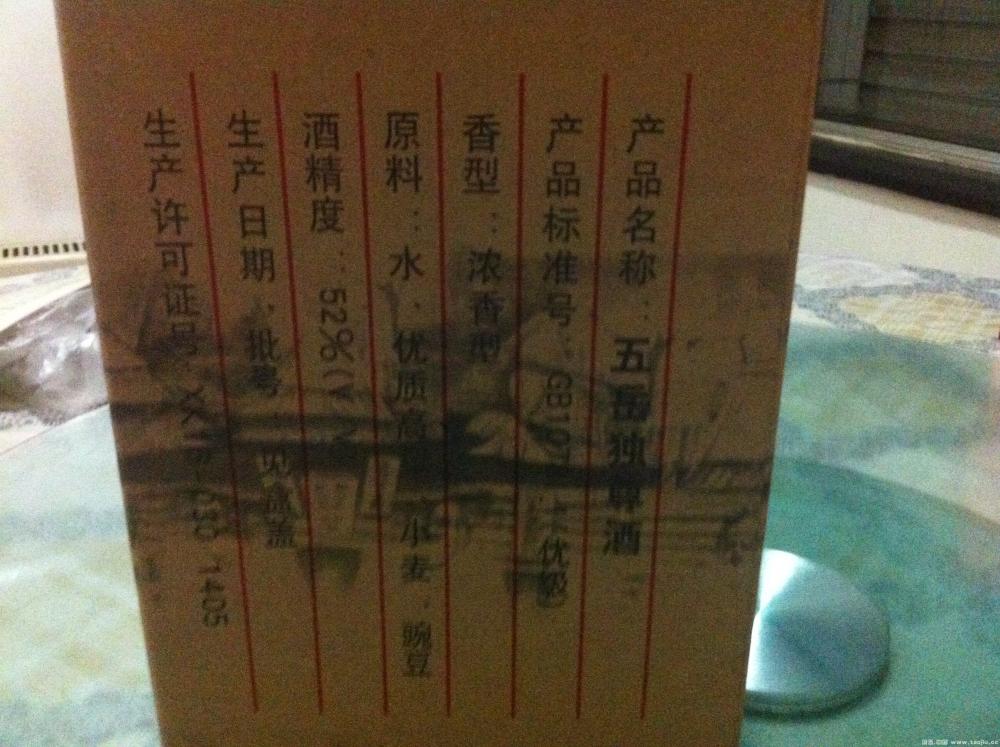 产品名称：五岳独尊酒
产品标准号：GB107 优级
香型：浓香型
原料：水、优质高 、小麦、豌豆
酒精度：52%(V/V
生产日期、批号：见盒盖
生产许可证号：XK1 1405
www.taojiu.cc